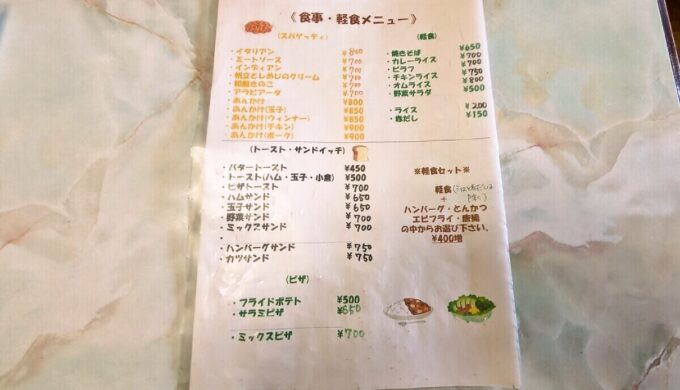 《食事・軽食メニュー》
(スパゲッティ)
・イタリアン ¥800
・ミートソース ¥700
・インディアン ¥700
・帆立としめじのクリーム ¥700
・和風きのこ ¥700
・アラビアータ ¥700
・あんかけ ¥800
・あんかけ(玉子) ¥850
・あんかけ(ウィンナー) ¥850
・あんかけ(チキン) ¥900
・あんかけ(ポーク) ¥900
(軽食)
・焼きそば ¥650
・カレーライス ¥700
・ピラフ ¥700
・チキンライス ¥750
・オムライス ¥800
・野菜サラダ ¥500
・ライス ¥200
・赤だし ¥150
(トースト・サンドイッチ)
・バタートースト ¥450
・トースト(ハム・玉子・小倉) ¥500
・ピザトースト ¥700
・ハムサンド ¥650
・玉子サンド ¥650
・野菜サンド ¥700
・ミックスサンド ¥700
・
・ハンバーグサンド ¥750
・カツサンド ¥750
※軽食セット※
軽食
+
ハンバーグ・とんかつ
エビフライ・唐揚
の中からお選び下さい。
¥400増
(ピザ)
・フライドポテト ¥500
・サラミピザ ¥650
・ミックスピザ ¥700